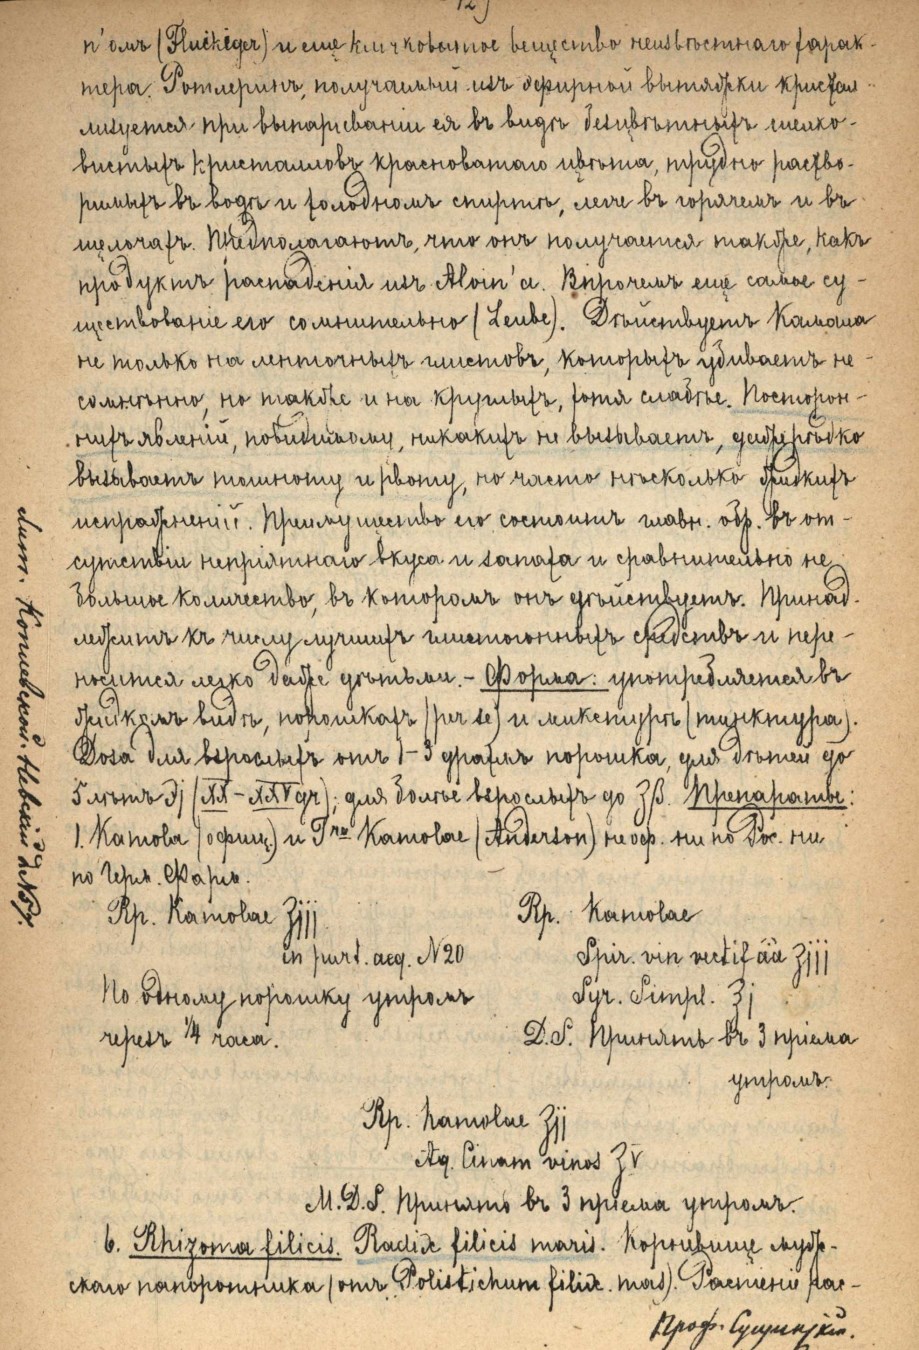 12)
п'омъ (Fluckiger) и еще клычковатое вещество неизвѣстнаго харак-
тера. Ротлеринъ, получаемый изъ эфирной вытяжки кристал-
лизуется при выпариваніи ея въ видѣ безцвѣтныхъ шелко-
вистыхъ кристалловъ красноватаго цвѣта, трудно раство-
римыхъ въ водѣ и холодномъ спиртѣ, легче въ горячемъ и въ
щелочахъ. Предполагаютъ, что онъ получается также, какъ
продуктъ распаденія изъ Aloin'a. Впрочемъ еще самое су-
ществованіе его сомнительно (Leube). Дѣйствуетъ Камала
не только на ленточныхъ глистовъ, которыхъ убиваетъ не-
сомнѣнно, но также и на круглыхъ, хотя слабѣе. Посторон-
нихъ явленій, повидимому, никакихъ не вызываетъ, даже рѣдко
вызываетъ тошноту и рвоту, но часто нѣсколько жидкихъ
испражненій. Преимущество его состоитъ главн. обр. въ от-
сутствіи непріятнаго вкуса и запаха и сравнительно не
большое количество, въ которомъ онъ дѣйствуетъ. Принад-
лежитъ къ числу лучшихъ глистогонныхъ средствъ и пере-
носится легко даже дѣтьми. - Форма: употребляется въ
жидкомъ видѣ, порошкахъ (per se) и микстурѣ (тинктура).
Доза для взрослыхъ отъ 1-3 драхмъ порошка, для дѣтей до
5 лѣтъ Эj (XX-XXV gr); для болѣе взрослыхъ до ʒβ. Препараты:
1. Kamala (офиц.) и Tra Kamalae (Anderson) не оф. ни по Рос. ни
по Герм. Фарм.
Rp. Kamalae ʒjjj
in part. aeq. N20
По одному порошку утромъ
черезъ 1/4 часа.
Rp. Kamalae
Spir. vin rectif āā ʒjjj
Syr. Simpl. ʒj
D.S. Принять въ 3 пріема
утромъ.
Rp. Kamalae ʒjj
Aq. Cinam vinos ʒv
M.D.S. Принять въ 3 пріема утромъ.
6. Rhizoma filicis. Radix filicis maris. Корневище муж-
скаго папоротника (отъ Polistichum filix. mas). Растеніе рас-
Проф. Сущинскій.
Лит.
Невскій